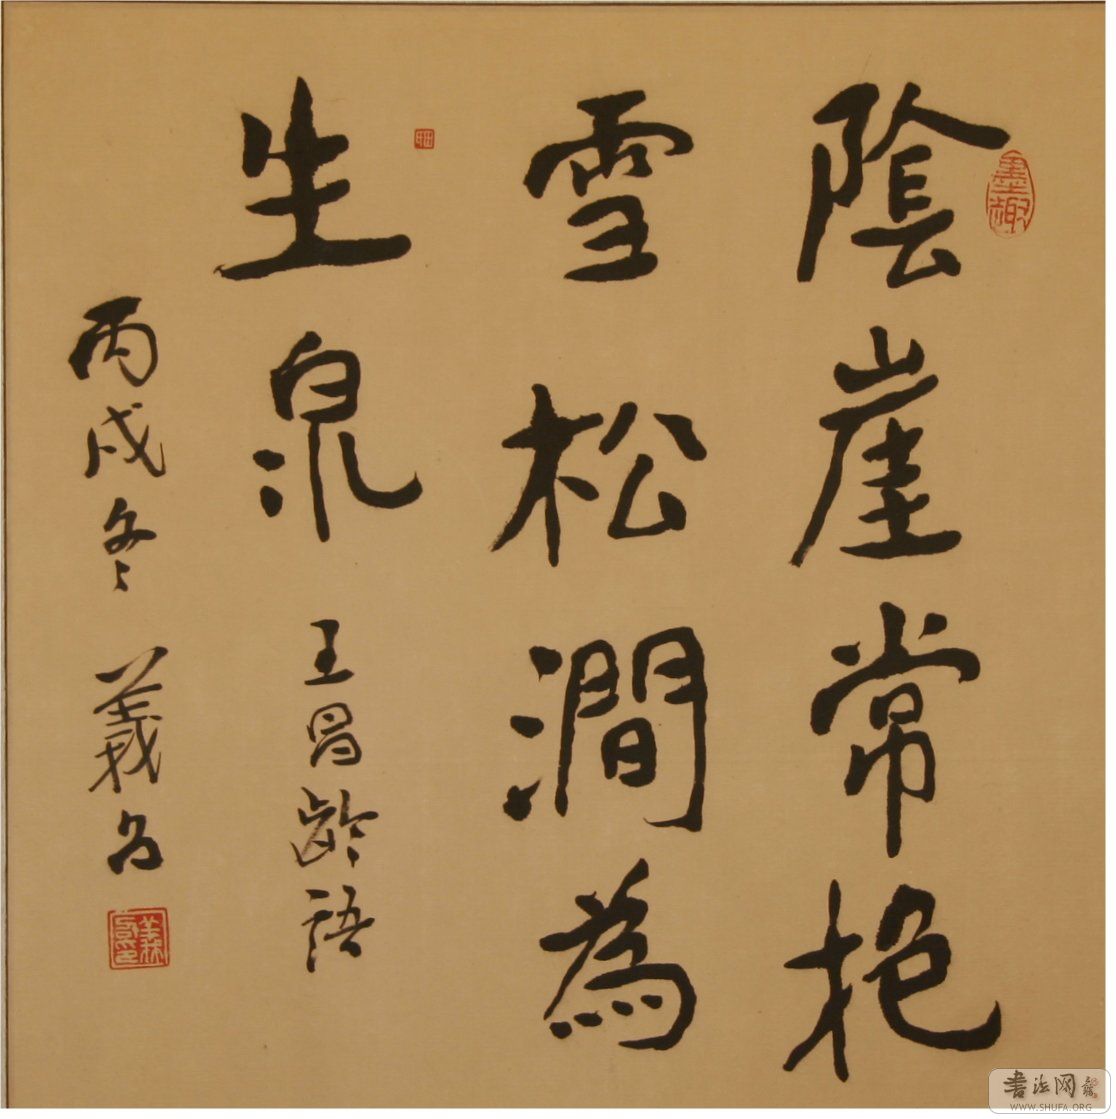 陰崖常抱
雪松澗為
生泉
王昌齡語
丙戌冬
義
墨趣
書法网
WWW.SHUFA.ORG